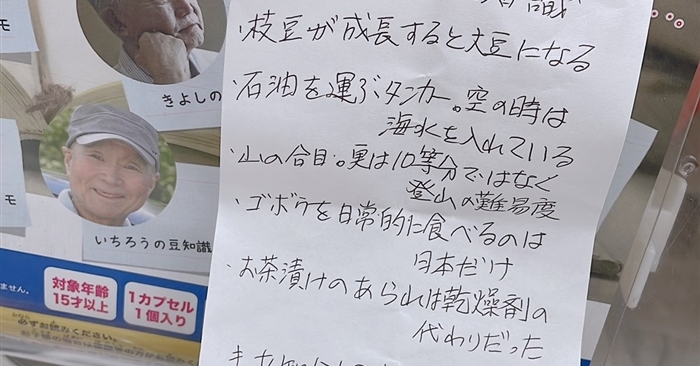 ・枝豆が成長すると大豆になる
・石油を運ぶタンカー。空の時は
海水を入れている
・山の合目。実は10等分ではなく
登山の難易度
・ゴボウを日常的に食べるのは
日本だけ
・お茶漬けのあられは乾燥剤の
代わりだった
きよしの
モ
いちろうの豆知識
モ
ません。
対象年齢
15才以上
1カプセル
1個入り
必ずお読みください。